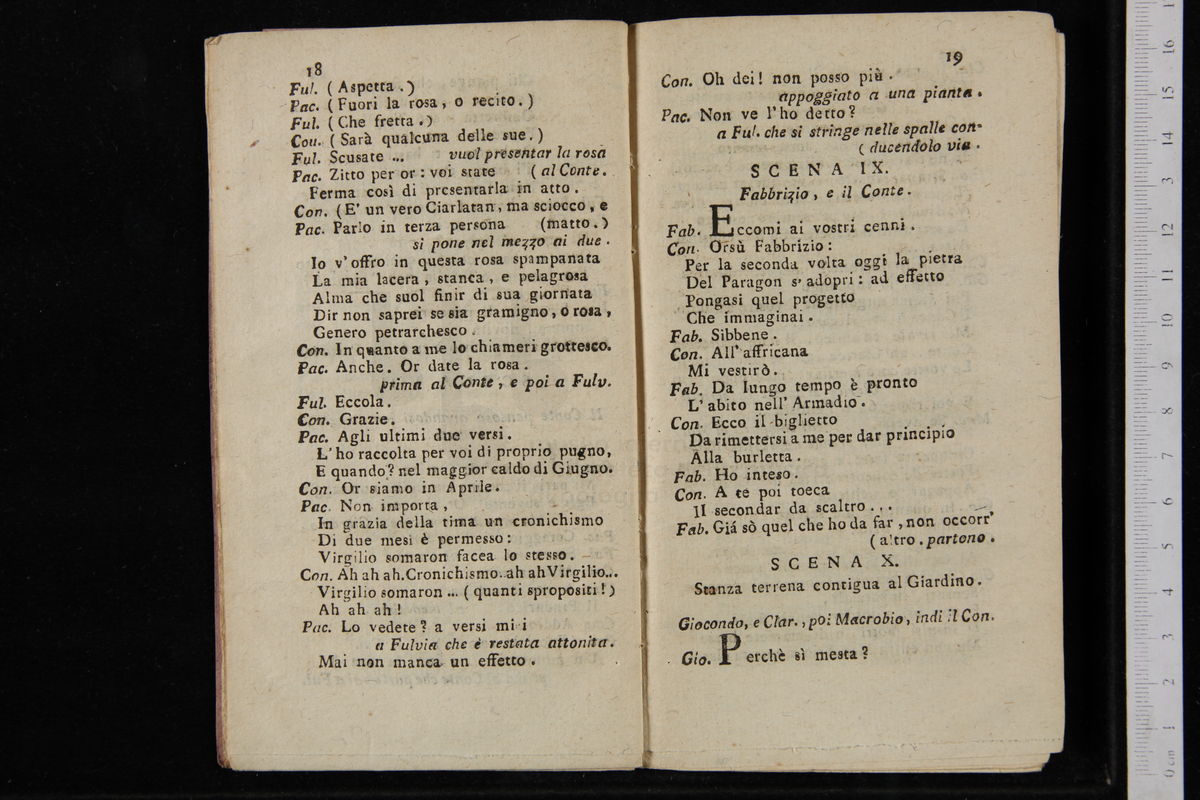 18
Ful. ( Aspetta . )
Pac. ( Fuori la rosa , o recito. )
Ful. ( Che fretta . )
Cou. ( Sarà qualcuna delle sue. )
Ful. Scusate ... vuol presentar la rosa
Pac. Zitto per or : voi state ( al Conte.
Ferma così di presentarla in atto .
Con. ( E' un vero Ciarlatan, ma sciocco , e
Pac. Parlo in terza persona (matto. )
si pone nel mezzo ai due .
Io v' offro in questa rosa spampanata
La mia lacera , stanca , e pelagrosa
Alma che suol finir di sua giornata
Dir non saprei se sia gramigno, o rosa ,
Genero petrarchesco .
Con. In quanto a me lo chiameri grottesco.
Pac. Anche. Or date la rosa .
prima al Conte , e poi a Fulv.
Ful. Eccola.
Con. Grazie.
Pac. Agli ultimi due versi.
L' ho raccolta per voi di proprio pugno,
E quando? nel maggior caldo di Giugno.
Con. Or siamo in Aprile.
Pac. Non importa ,
In grazia della rima un cronichismo
Di due mesi è permesso :
Virgilio somaron facea lo stesso. -
Con. Ah ah ah. Cronichismo.. ah ah Virgilio...
Virgilio somaron ... ( quanti spropositi ! )
Ah ah ah !
Pac. Lo vedete ? a versi mi i
a Fulvia che è restata attonita.
Mai non manca un effetto .
19
Con. Oh dei ! non posso più .
appoggiato a una pianta .
Pac. Non ve l' ho detto ?
a Ful. che si stringe nelle spalle con-
( ducendolo via .
SCENA IX.
Fabbrizio , e il Conte .
Fab. Eccomi ai vostri cenni .
Con. Orsù Fabbrizio :
Per la seconda volta oggi la pietra
Del Paragon s' adopri : ad effetto
Pongasi quel progetto
Che immaginai .
Fab. Sibbene .
Con. All' affricana
Mi vestirò.
Fab. Da lungo tempo è pronto
L' abito nell' Armadio .
Con. Ecco il biglietto
Da rimettersi a me per dar principio
Alla burletta .
Fab. Ho inteso .
Con. A te poi toeca
Il secondar da scaltro . . .
Fab. Giá sò quel che ho da far , non occorr'
( altro . partono .
SCENA X.
Stanza terrena contigua al Giardino .
Giocondo, e Clar. , poi Macrobio , indi il Con.
Gio. Perchè sì mesta ?
0 cm 1 2 3 4 5 6 7 8 9 10 11 12 3 14 15 16